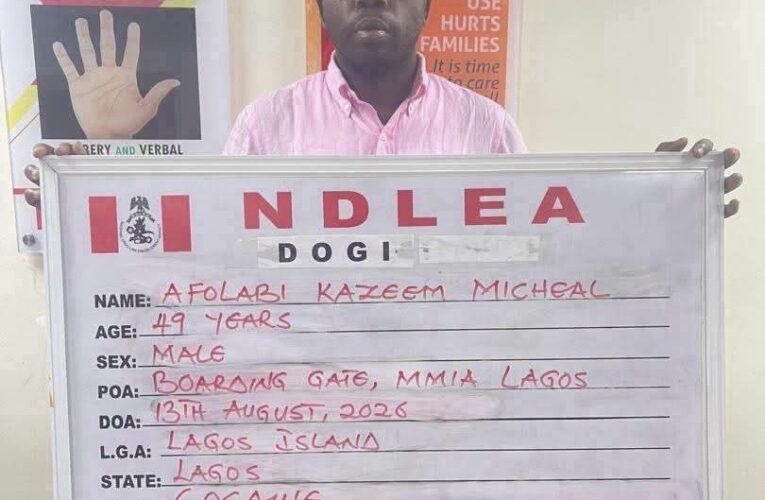 USE
HURTS
FAMILIES
It is time
to care
BERY AND VERBAL
NDLEA
DOGI
NAME: AFOLABI KAZEEM MICHEAL
AGE: 49 YEARS
SEX: MALE
POA: BOARDING GATE, MMIA LAGOS
DOA: 13TH AUGUST, 2026
L.G.A: LAGOS ISLAND
STATE: LAGOS
COCAINE